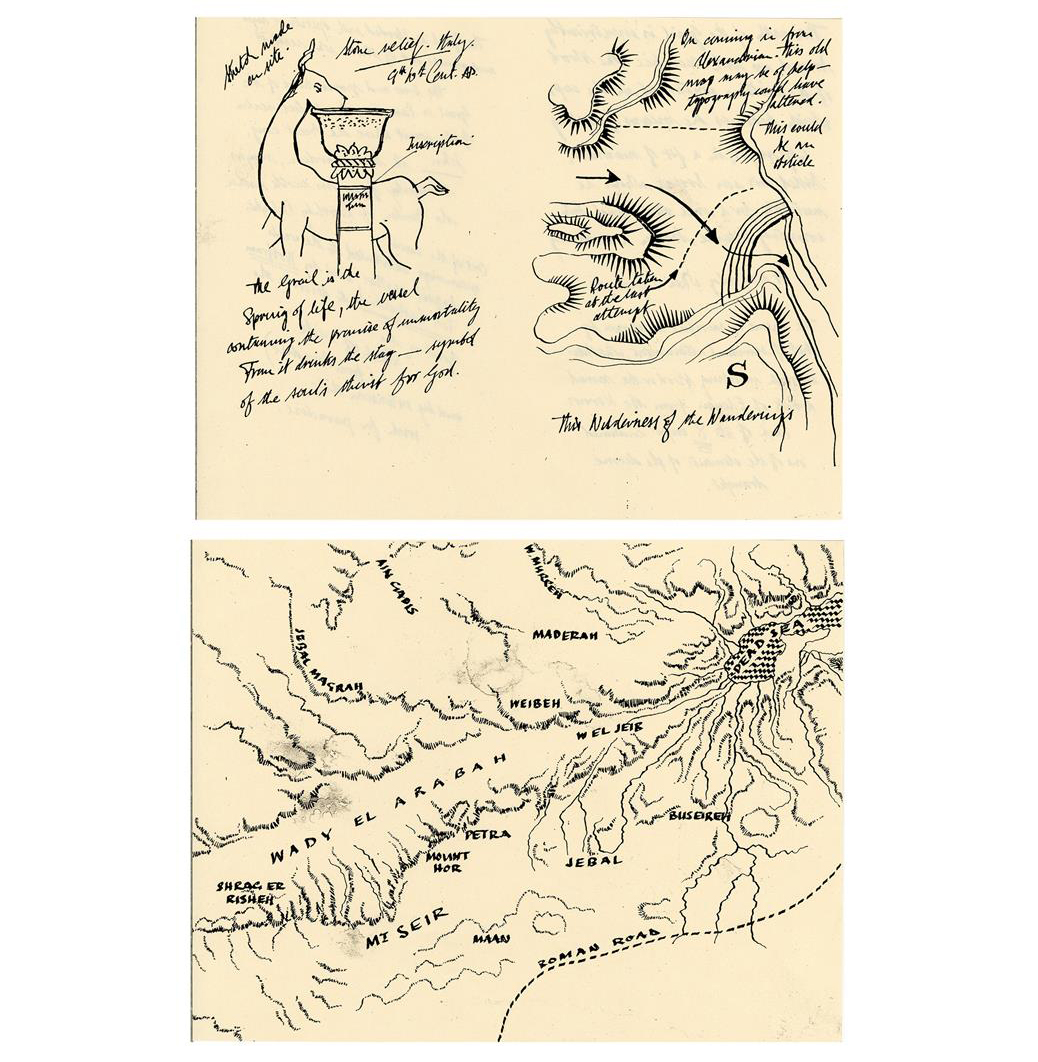 Sketch made
on site.
Stone relief. Italy.
9th 10th Cent. AD.
Inscription
the Grail is the
Spring of life, the vessel
containing the promise of immortality
From it drinks the stag — symbol
of the soul's thirst for God.
On coming in from
Alexandrian. This old
map may be of help —
typography could have
altered.
This could
be an
obsticle
Route taken
at the last
attempt
S
This Wilderness of the Wanderings
AIN GADIS
W. MURREH
JEBAL MAGRAH
MADERAH
DEAD SEA
WEIBEH
W EL JEIB
WADY EL ARABAH
BUSEIREH
PETRA
MOUNT
HOR
JEBAL
SHRAG ER
RISHEH
MT SEIR
MAAN
ROMAN ROAD